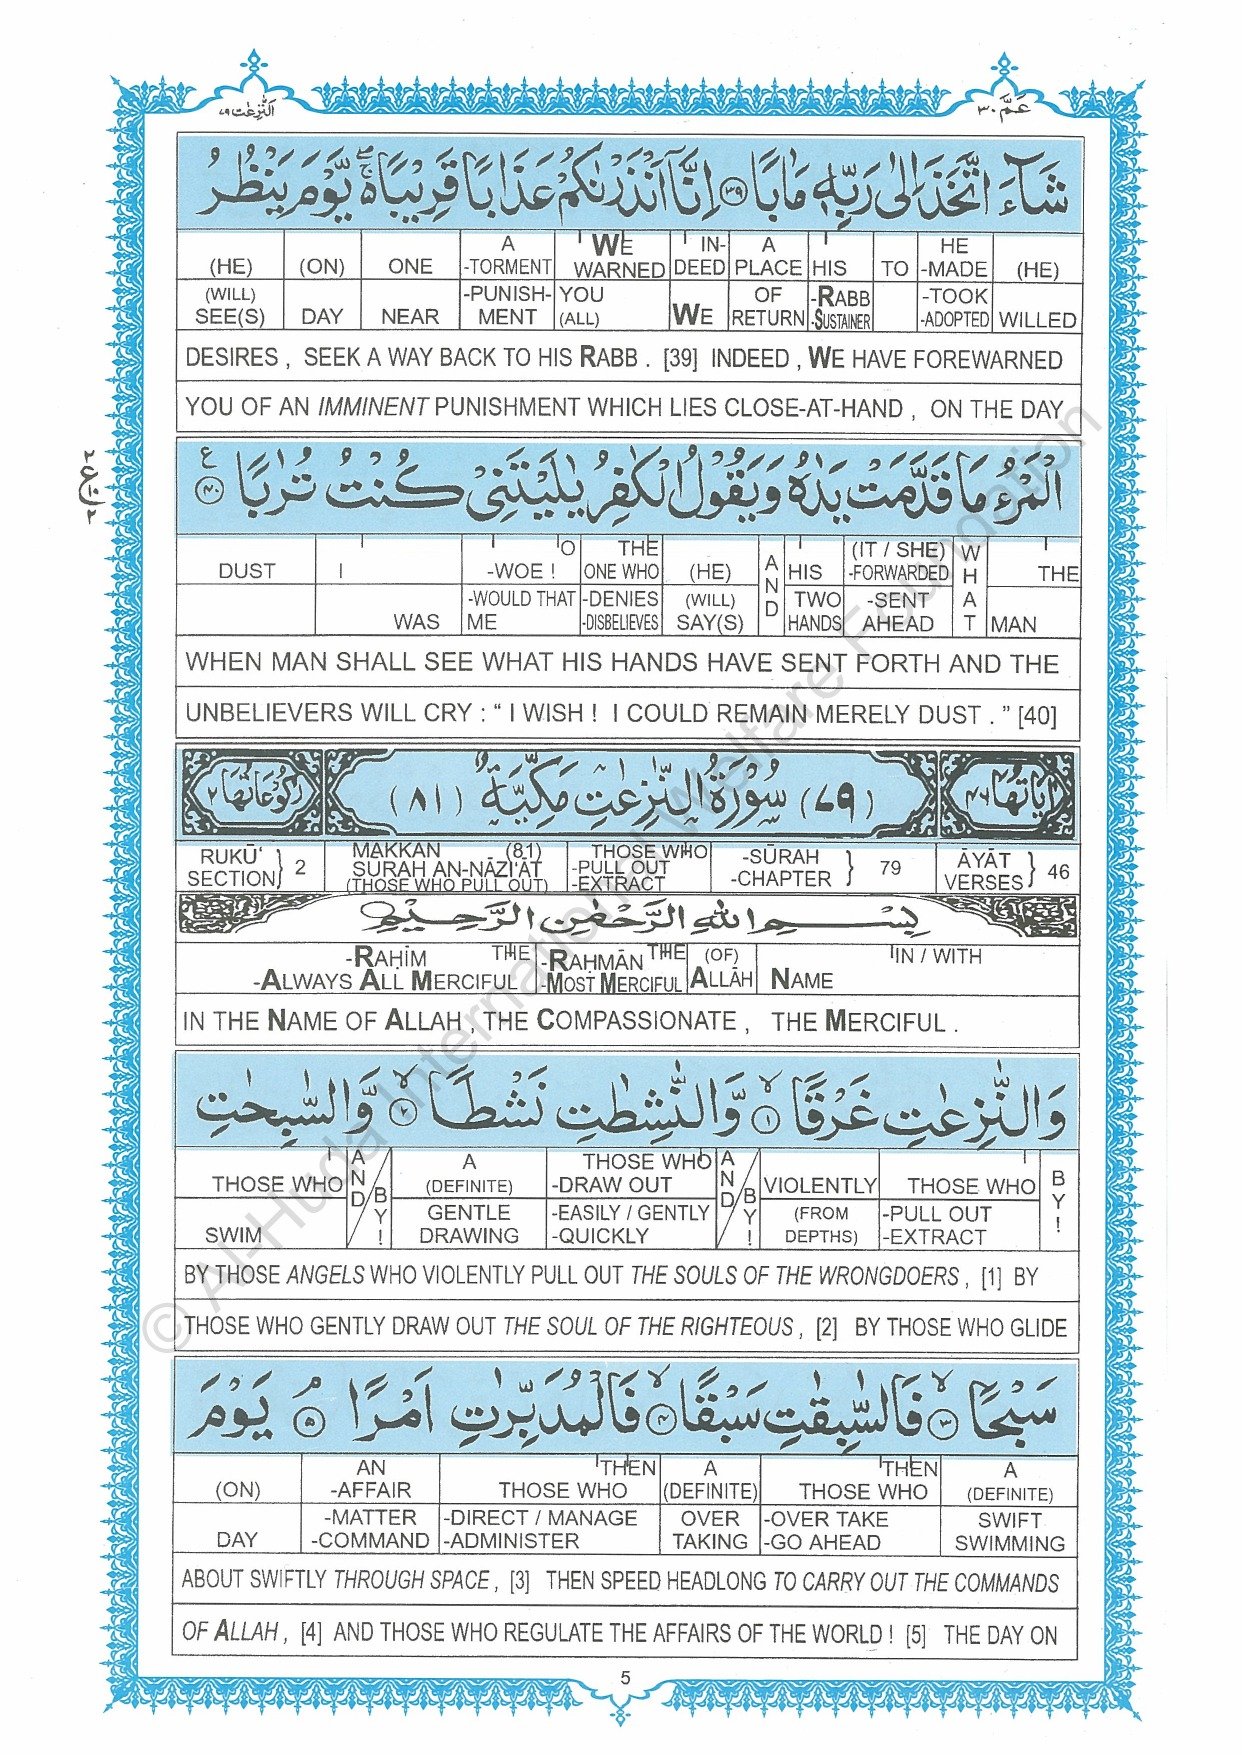 عَمَّ ٣٠
اَلنّٰزِعٰت ٧٩
شَآءَ اتَّخَذَ اِلٰى رَبِّهٖ مَاٰبًا ﴿٣٩﴾ اِنَّاۤ اَنْذَرْنٰكُمْ عَذَابًا قَرِيْبًا ۬ۚۖ يَّوْمَ يَنْظُرُ
(HE) (ON) ONE A -TORMENT WE WARNED IN- DEED A PLACE HIS TO HE -MADE (HE)
(WILL) SEE(S) DAY NEAR -PUNISH- MENT YOU (ALL) WE OF RETURN -RABB -SUSTAINER -TOOK -ADOPTED WILLED
DESIRES , SEEK A WAY BACK TO HIS RABB . [39] INDEED , WE HAVE FOREWARNED
YOU OF AN IMMINENT PUNISHMENT WHICH LIES CLOSE-AT-HAND , ON THE DAY
٢
ع
١٠
٢
الْمَرْءُ مَا قَدَّمَتْ يَدٰهُ وَيَقُوْلُ الْكٰفِرُ يٰلَيْتَنِيْ كُنْتُ تُرٰبًا ﴿٤٠﴾ ع
DUST I O -WOE ! THE ONE WHO (HE) AND HIS (IT / SHE) -FORWARDED WHAT THE
WAS -WOULD THAT ME -DENIES -DISBELIEVES (WILL) SAY(S) TWO HANDS -SENT AHEAD MAN
WHEN MAN SHALL SEE WHAT HIS HANDS HAVE SENT FORTH AND THE
UNBELIEVERS WILL CRY : “ I WISH ! I COULD REMAIN MERELY DUST . ” [40]
اٰيَاتُهَا ٤٦ (٧٩) سُوْرَةُ النّٰزِعٰتِ مَكِّيَّةٌ (٨١) رُكُوْعَاتُهَا ٢
RUKŪ‘ SECTION } 2 MAKKAN (81) SURAH AN-NĀZI‘ĀT (THOSE WHO PULL OUT) THOSE WHO -PULL OUT -EXTRACT -SŪRAH -CHAPTER } 79 ĀYĀT VERSES } 46
بِسْمِ اللهِ الرَّحْمٰنِ الرَّحِيْمِ
-RAḤĪM THE -RAḤMĀN THE (OF) IN / WITH
-ALWAYS ALL MERCIFUL -MOST MERCIFUL ALLĀH NAME
IN THE NAME OF ALLAH , THE COMPASSIONATE , THE MERCIFUL .
وَالنّٰزِعٰتِ غَرْقًا ﴿١﴾ وَّالنّٰشِطٰتِ نَشْطًا ﴿٢﴾ وَّالسّٰبِحٰتِ
THOSE WHO AND / BY! A (DEFINITE) THOSE WHO -DRAW OUT AND / BY! VIOLENTLY THOSE WHO BY!
SWIM GENTLE DRAWING -EASILY / GENTLY -QUICKLY (FROM DEPTHS) -PULL OUT -EXTRACT
BY THOSE ANGELS WHO VIOLENTLY PULL OUT THE SOULS OF THE WRONGDOERS , [1] BY
THOSE WHO GENTLY DRAW OUT THE SOUL OF THE RIGHTEOUS , [2] BY THOSE WHO GLIDE
سَبْحًا ﴿٣﴾ فَالسّٰبِقٰتِ سَبْقًا ﴿٤﴾ فَالْمُدَبِّرٰتِ اَمْرًا ﴿٥﴾ يَوْمَ
(ON) AN -AFFAIR THEN THOSE WHO A (DEFINITE) THEN THOSE WHO A (DEFINITE)
DAY -MATTER -COMMAND -DIRECT / MANAGE -ADMINISTER OVER TAKING -OVER TAKE -GO AHEAD SWIFT SWIMMING
ABOUT SWIFTLY THROUGH SPACE , [3] THEN SPEED HEADLONG TO CARRY OUT THE COMMANDS
OF ALLAH , [4] AND THOSE WHO REGULATE THE AFFAIRS OF THE WORLD ! [5] THE DAY ON
5
© Al-Huda International Welfare Foundation